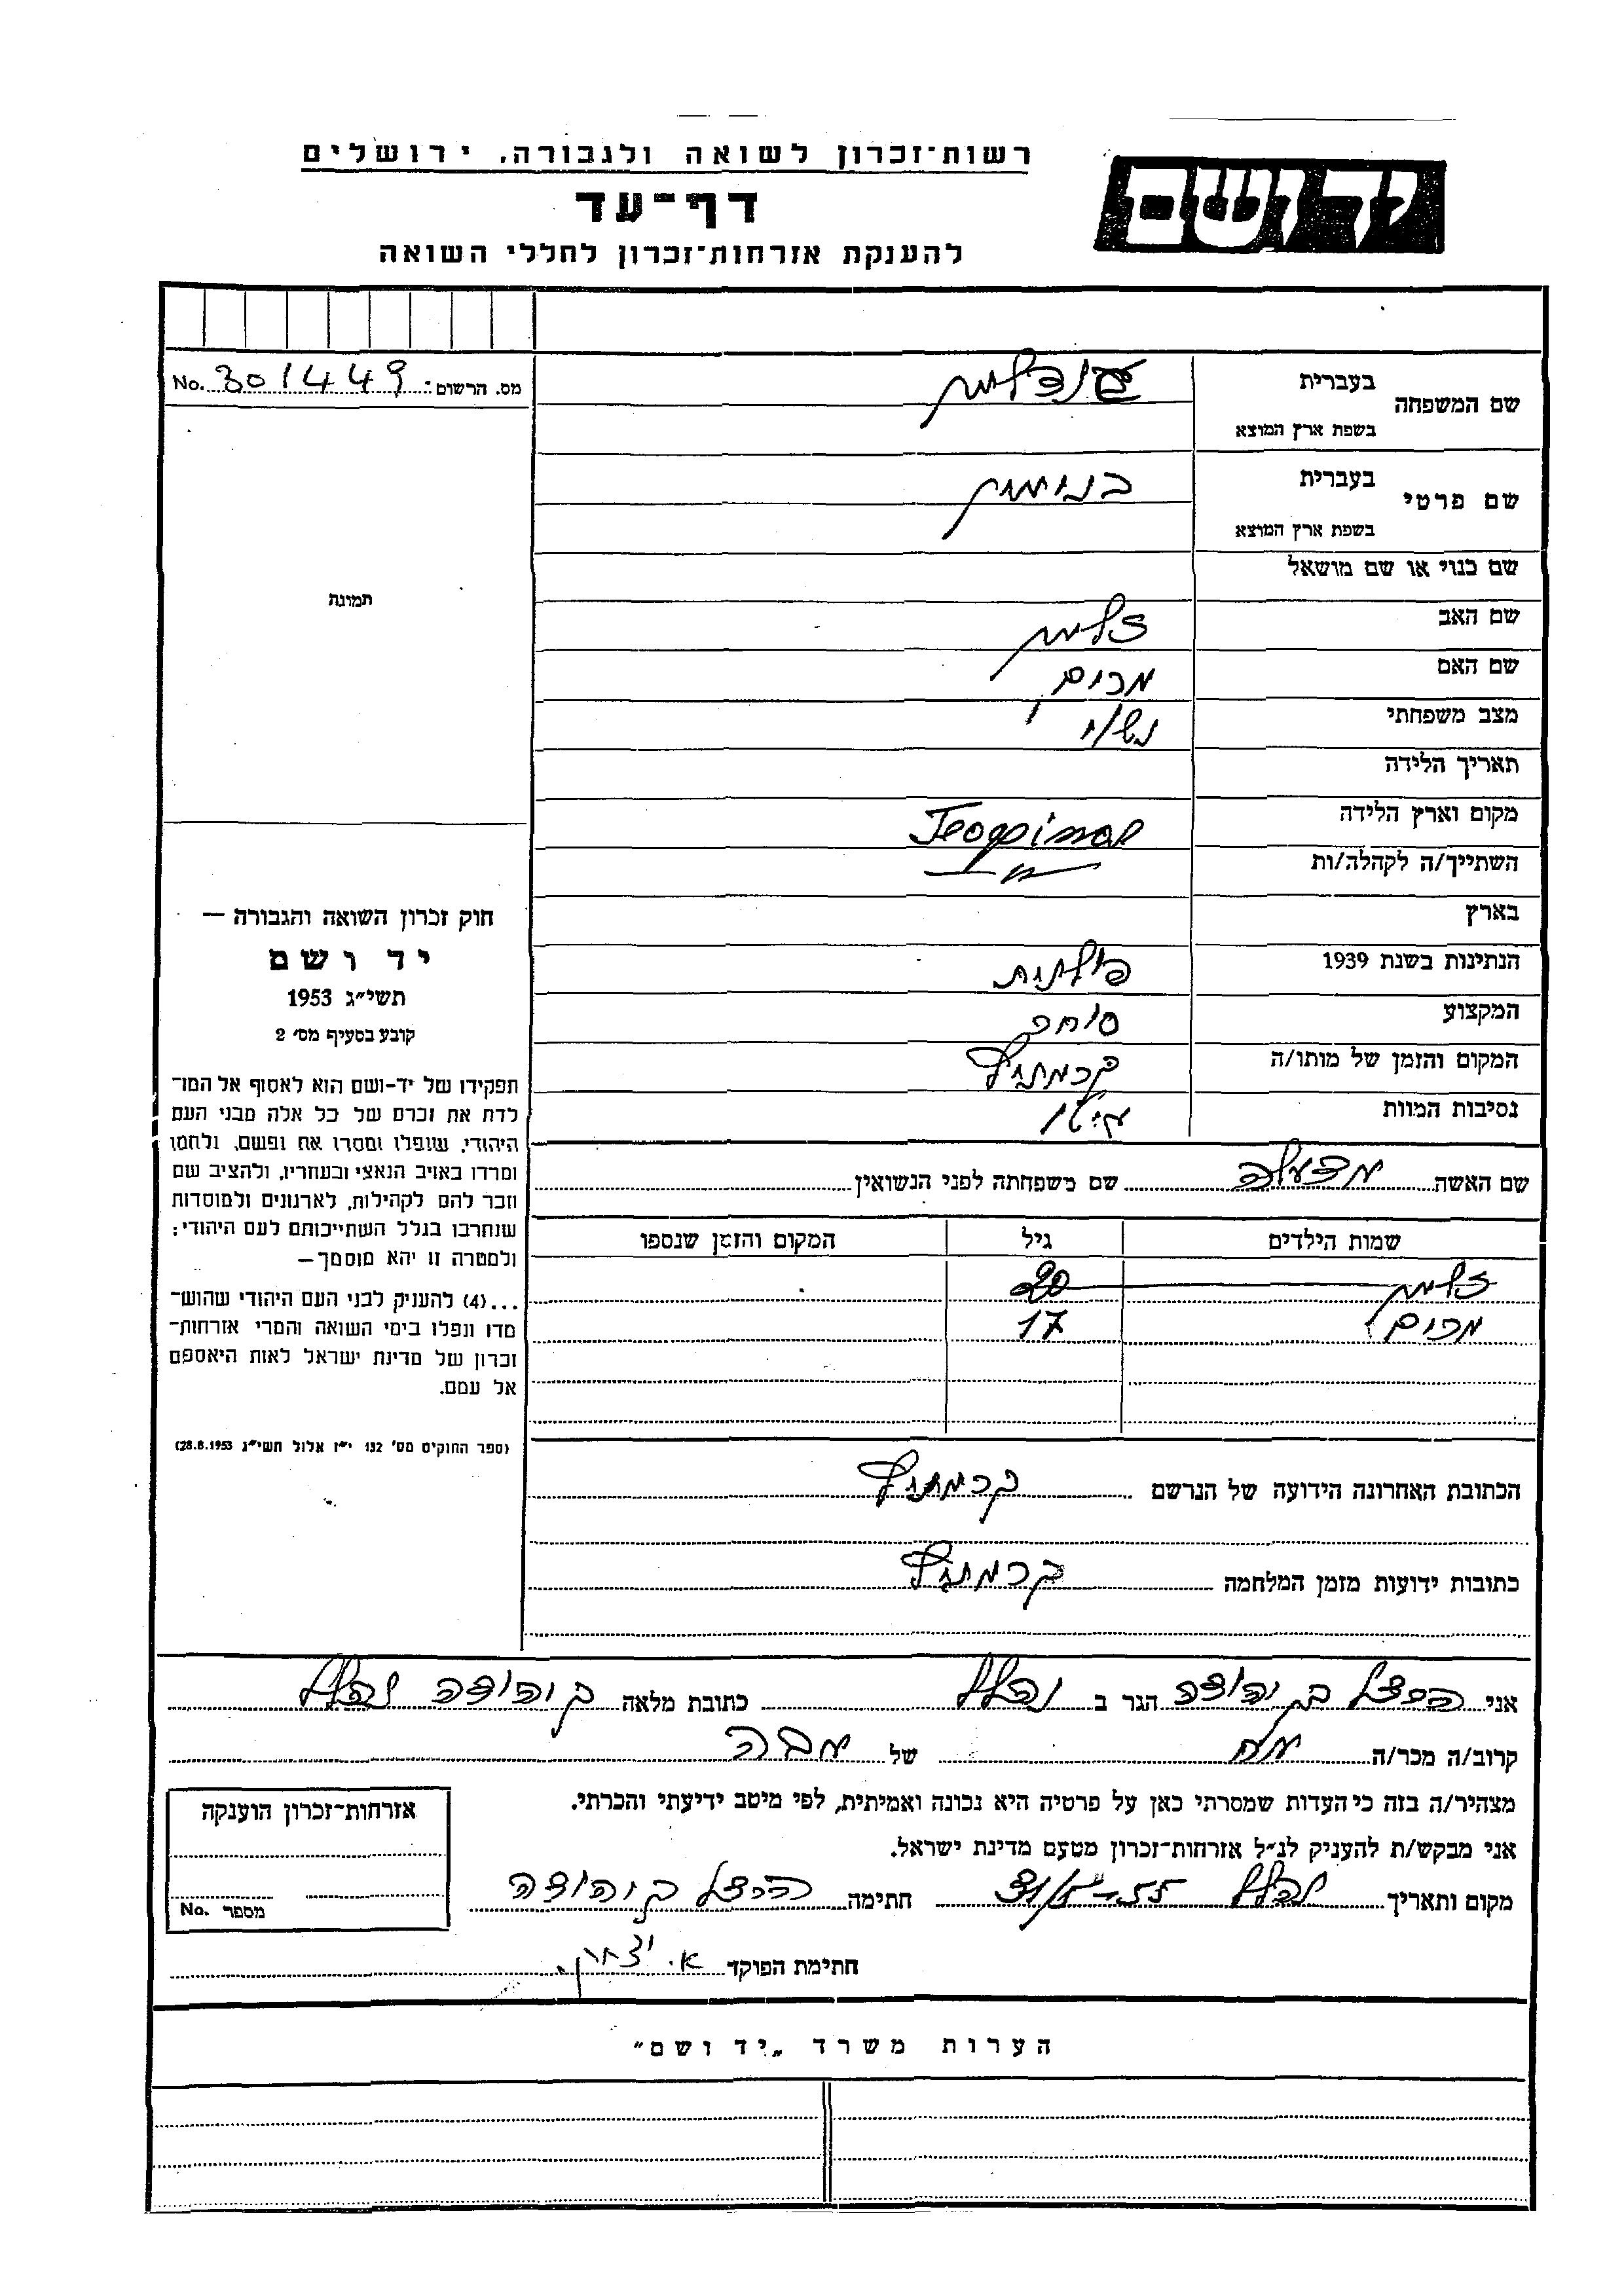 רשות־זכרון לשואה ולגבורה, ירושלים
יד ושם
דף־עד
להענקת אזרחות־זכרון לחללי השואה
מס. הרשום: No. 301449
שם המשפחה
בעברית
בשפת ארץ המוצא
שם פרטי
בעברית בנימין
בשפת ארץ המוצא
שם כנוי או שם מושאל
שם האב זלמן
שם האם מרים
מצב משפחתי נשוי
תאריך הלידה
מקום וארץ הלידה
השתייך/ה לקהלה/ות
בארץ
הנתינות בשנת 1939 פולנית
המקצוע סוחר
המקום והזמן של מותו/ה
נסיבות המוות
תמונה
חוק זכרון השואה והגבורה —
יד ושם
תשי״ג 1953
קובע בסעיף מס׳ 2
תפקידו של יד-ושם הוא לאסוף אל המו־
לדת את זכרם של כל אלה מבני העם
היהודי, שנפלו ומסרו את נפשם, נלחמו
ומרדו באויב הנאצי ובעוזריו, ולהציב שם
וזכר להם לקהילות, לארגונים ולמוסדות
שנחרבו בגלל השתייכותם לעם היהודי;
ולמטרה זו יהא מוסמך—
...(4) להעניק לבני העם היהודי שהוש־
מדו ונפלו בימי השואה והמרי אזרחות־
זכרון של מדינת ישראל לאות היאספם
אל עמם.
(ספר החוקים מס׳ 132 י״ז אלול תשי״ג 28.8.1953)
שם האשה שם משפחתה לפני הנשואין
שמות הילדים גיל המקום והזמן שנספו
זלמן 20
מרים 17
הכתובת האחרונה הידועה של הנרשם
כתובות ידועות מזמן המלחמה
אני הרצל בן יהודה הגר ב נהלל כתובת מלאה בן יהודה נהלל
קרוב/ה מכר/ה של
מצהיר/ה בזה כי העדות שמסרתי כאן על פרטיה היא נכונה ואמיתית, לפי מיטב ידיעתי והכרתי.
אני מבקש/ת להעניק לנ״ל אזרחות־זכרון מטעם מדינת ישראל.
מקום ותאריך נהלל חתימה הרצל בן יהודה
חתימת הפוקד א. יצחק
אזרחות־זכרון הוענקה
מספר No.
הערות משרד „יד ושם”